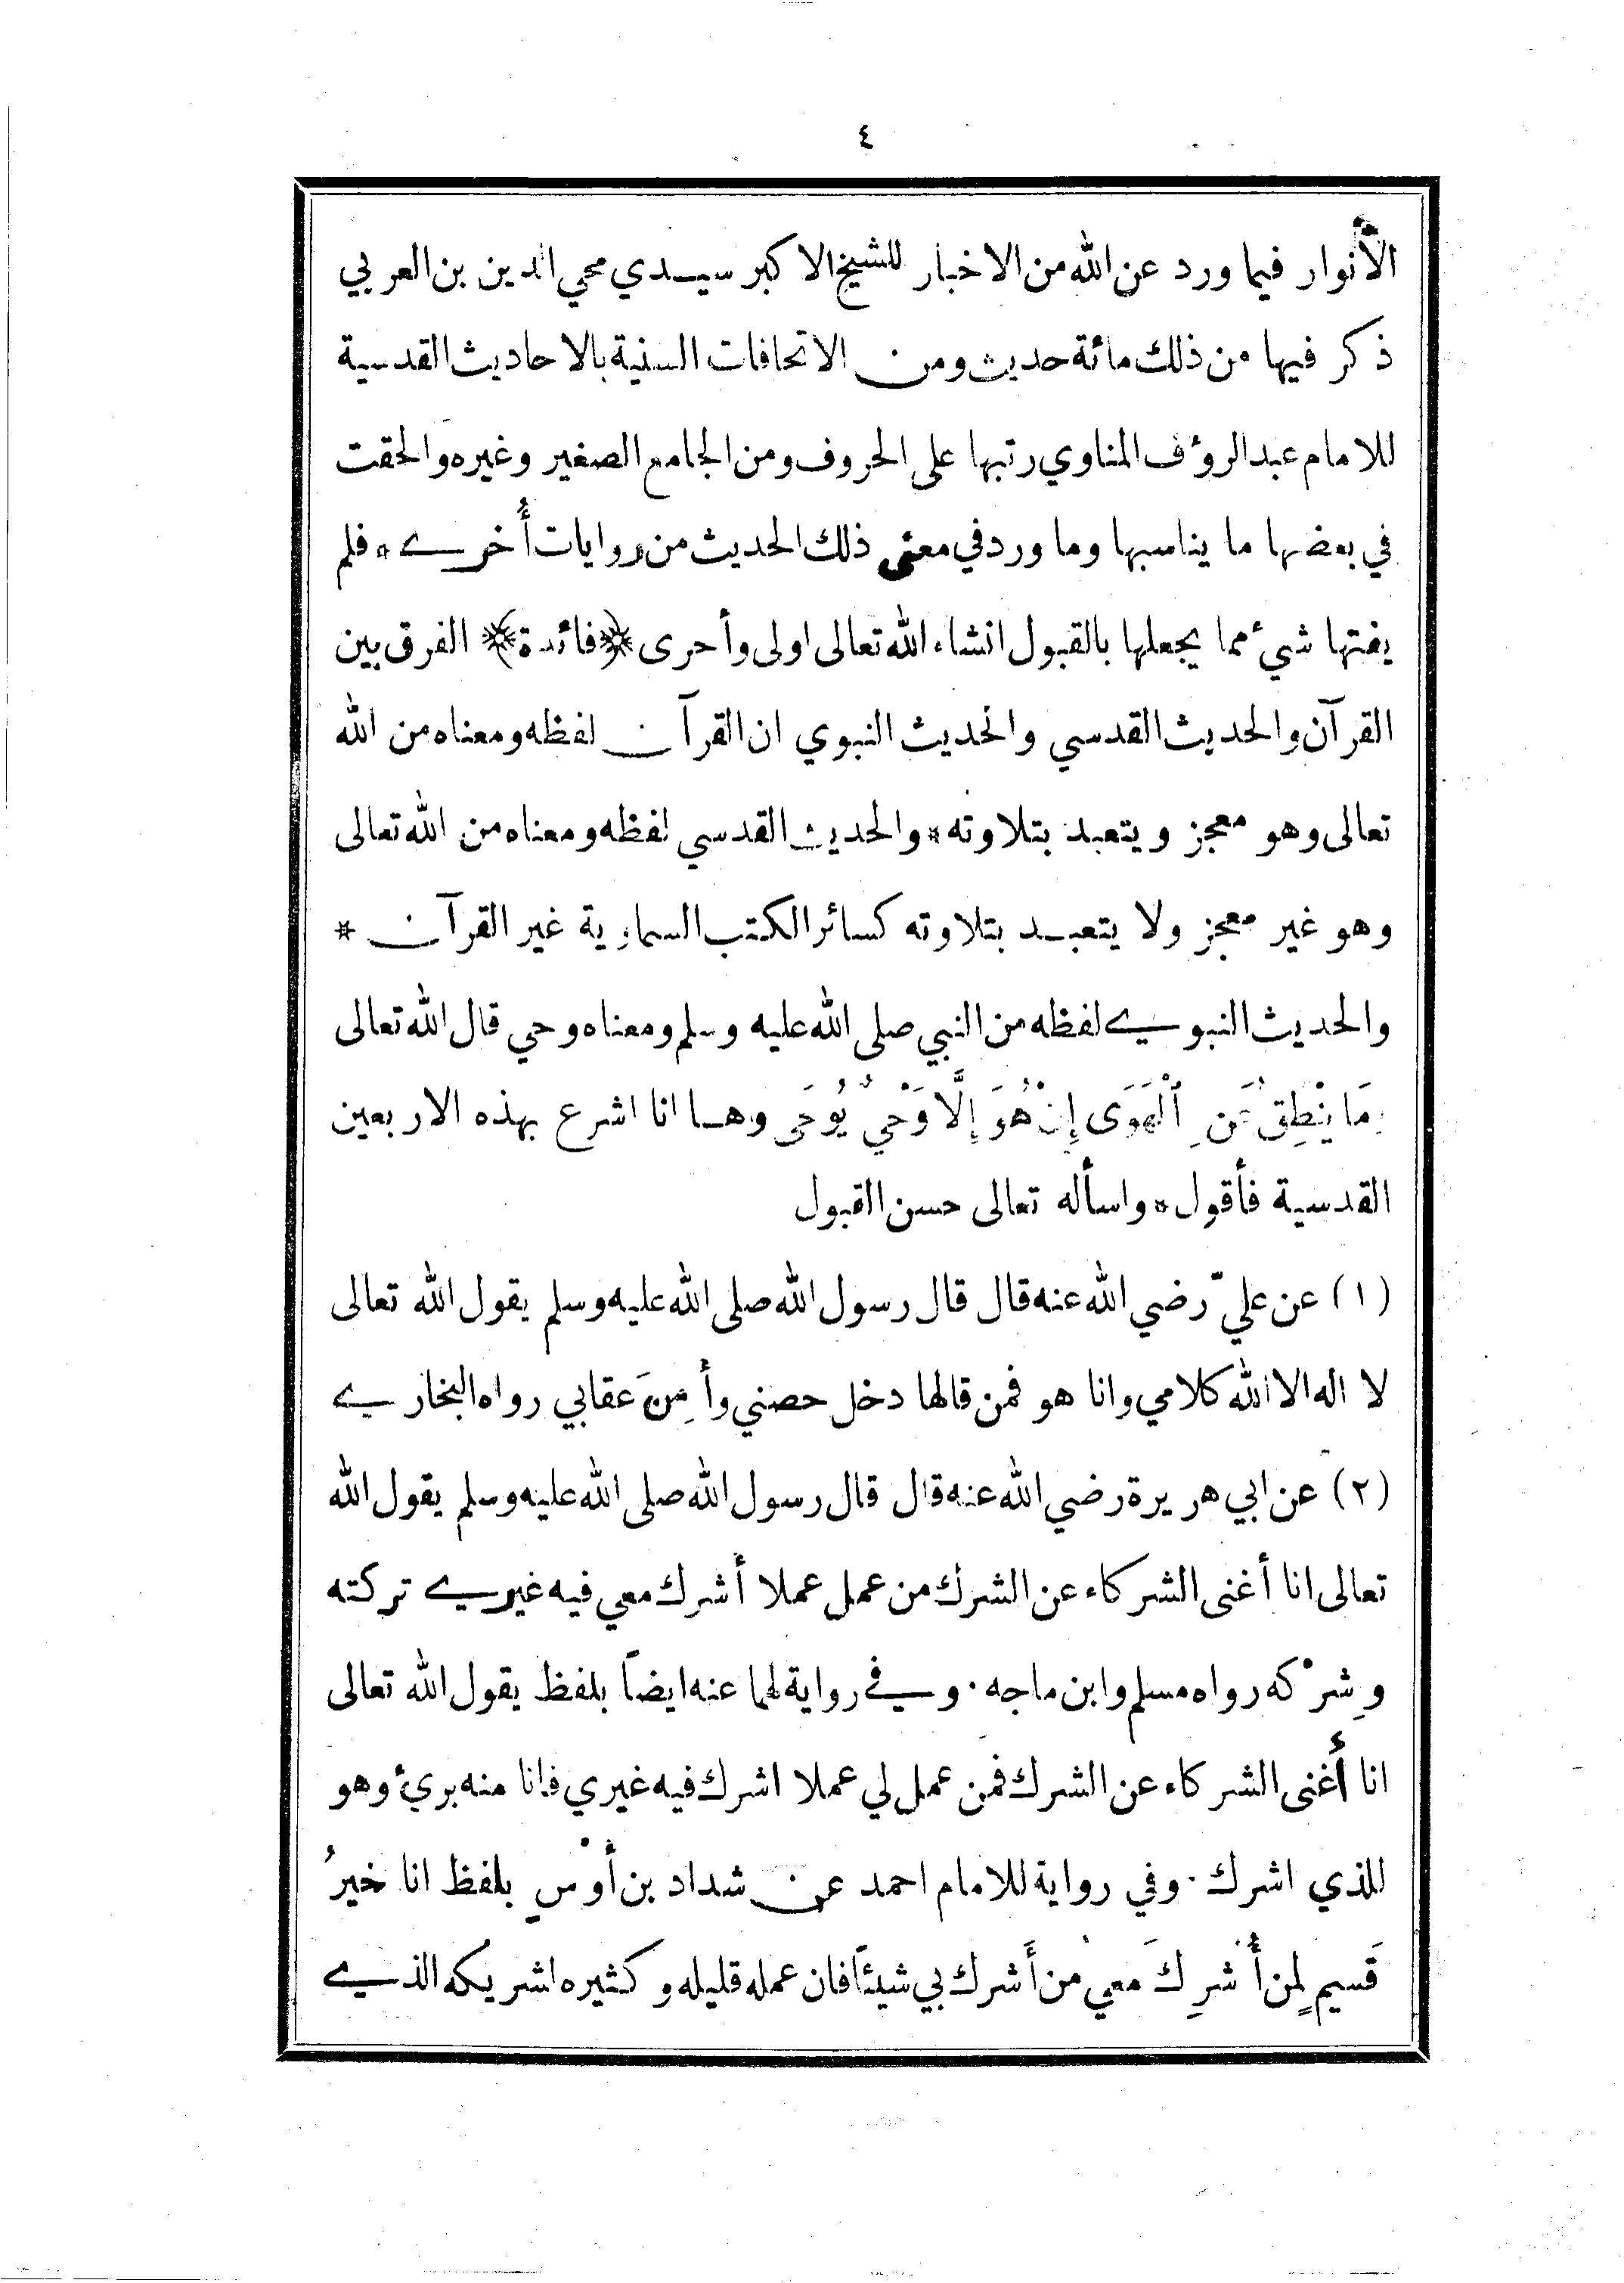 ٤
الأنوار فيما ورد عن الله من الاخبار للشيخ الاكبر سيدي محي الدين بن العربي
ذكر فيها من ذلك مائة حديث ومن الاتحافات السنية بالاحاديث القدسية
للامام عبد الرؤف المناوي رتبها على الحروف ومن الجامع الصغير وغيره والحقت
في بعضها ما يناسبها وما ورد في معنى ذلك الحديث من روايات أُخرى * فلم
يفتها شيء مما يجعلها بالقبول انشاء الله تعالى اولى وأحرى ﴿فائدة﴾ الفرق بين
القرآن والحديث القدسي والحديث النبوي ان القرآن لفظه ومعناه من الله
تعالى وهو معجز ويتعبد بتلاوته * والحديث القدسي لفظه ومعناه من الله تعالى
وهو غير معجز ولا يتعبد بتلاوته كسائر الكتب السماوية غير القرآن *
والحديث النبوي لفظه من النبي صلى الله عليه وسلم ومعناه وحي قال الله تعالى
مَا يَنْطِقُ عَنِ ٱلْهَوَى إِنْ هُوَ إِلَّا وَحْيٌ يُوحَى وها انا اشرع بهذه الاربعين
القدسية فأقول * واسأله تعالى حسن القبول
(١) عن عليّ رضي الله عنه قال قال رسول الله صلى الله عليه وسلم يقول الله تعالى
لا اله الا الله كلامي وانا هو فمن قالها دخل حصني وأَمِنَ عقابي رواه البخاري
(٢) عن ابي هريرة رضي الله عنه قال قال رسول الله صلى الله عليه وسلم يقول الله
تعالى انا أغنى الشركاء عن الشرك من عمل عملا أشرك معي فيه غيري تركته
وشِرْكه رواه مسلم وابن ماجه . وفي رواية لهما عنه ايضاً بلفظ يقول الله تعالى
انا أَغنى الشركاء عن الشرك فمن عمل لي عملا اشرك فيه غيري فانا منه بريء وهو
للذي اشرك . وفي رواية للامام احمد عن شداد بن أَوْس بلفظ انا خيرُ
قَسيمٍ لمن أُشرِكَ معي من أَشرك بي شيئًا فان عمله قليله وكثيره لشريكه الذي